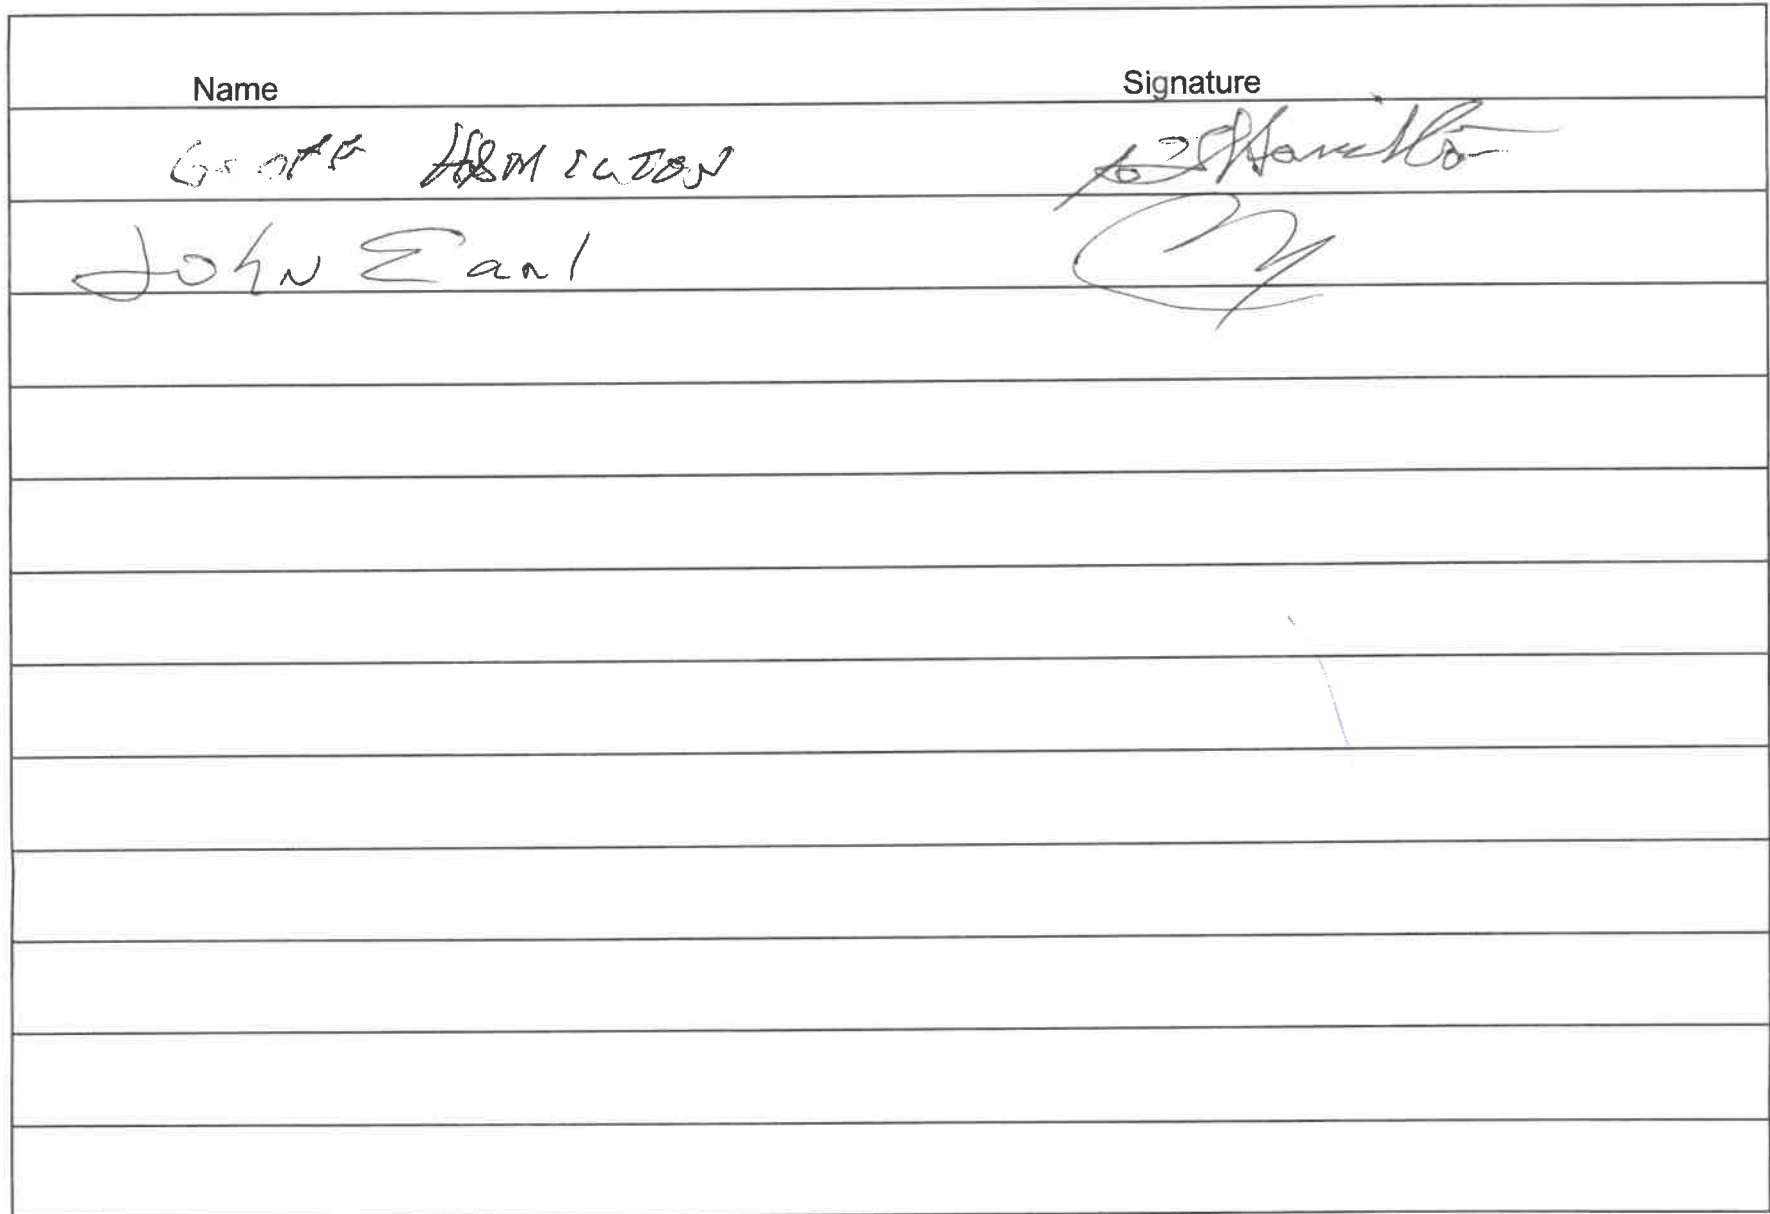 Name Signature
GEOFF HAMILTON Hamilton
John Earl